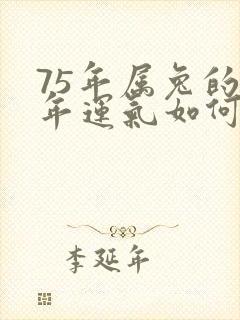 75年属兔的
年運氣如何
李延年